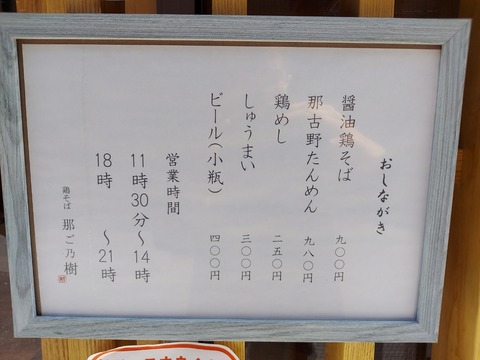 おしながき
醤油鶏そば 九〇〇円
那古野たんめん 九八〇円
鶏めし 二五〇円
しゅうまい 三〇〇円
ビール(小瓶) 四〇〇円
営業時間
11時30分〜14時
18時 〜21時
鶏そば 那ご乃樹